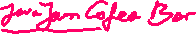 Java Jam Cofea Bar